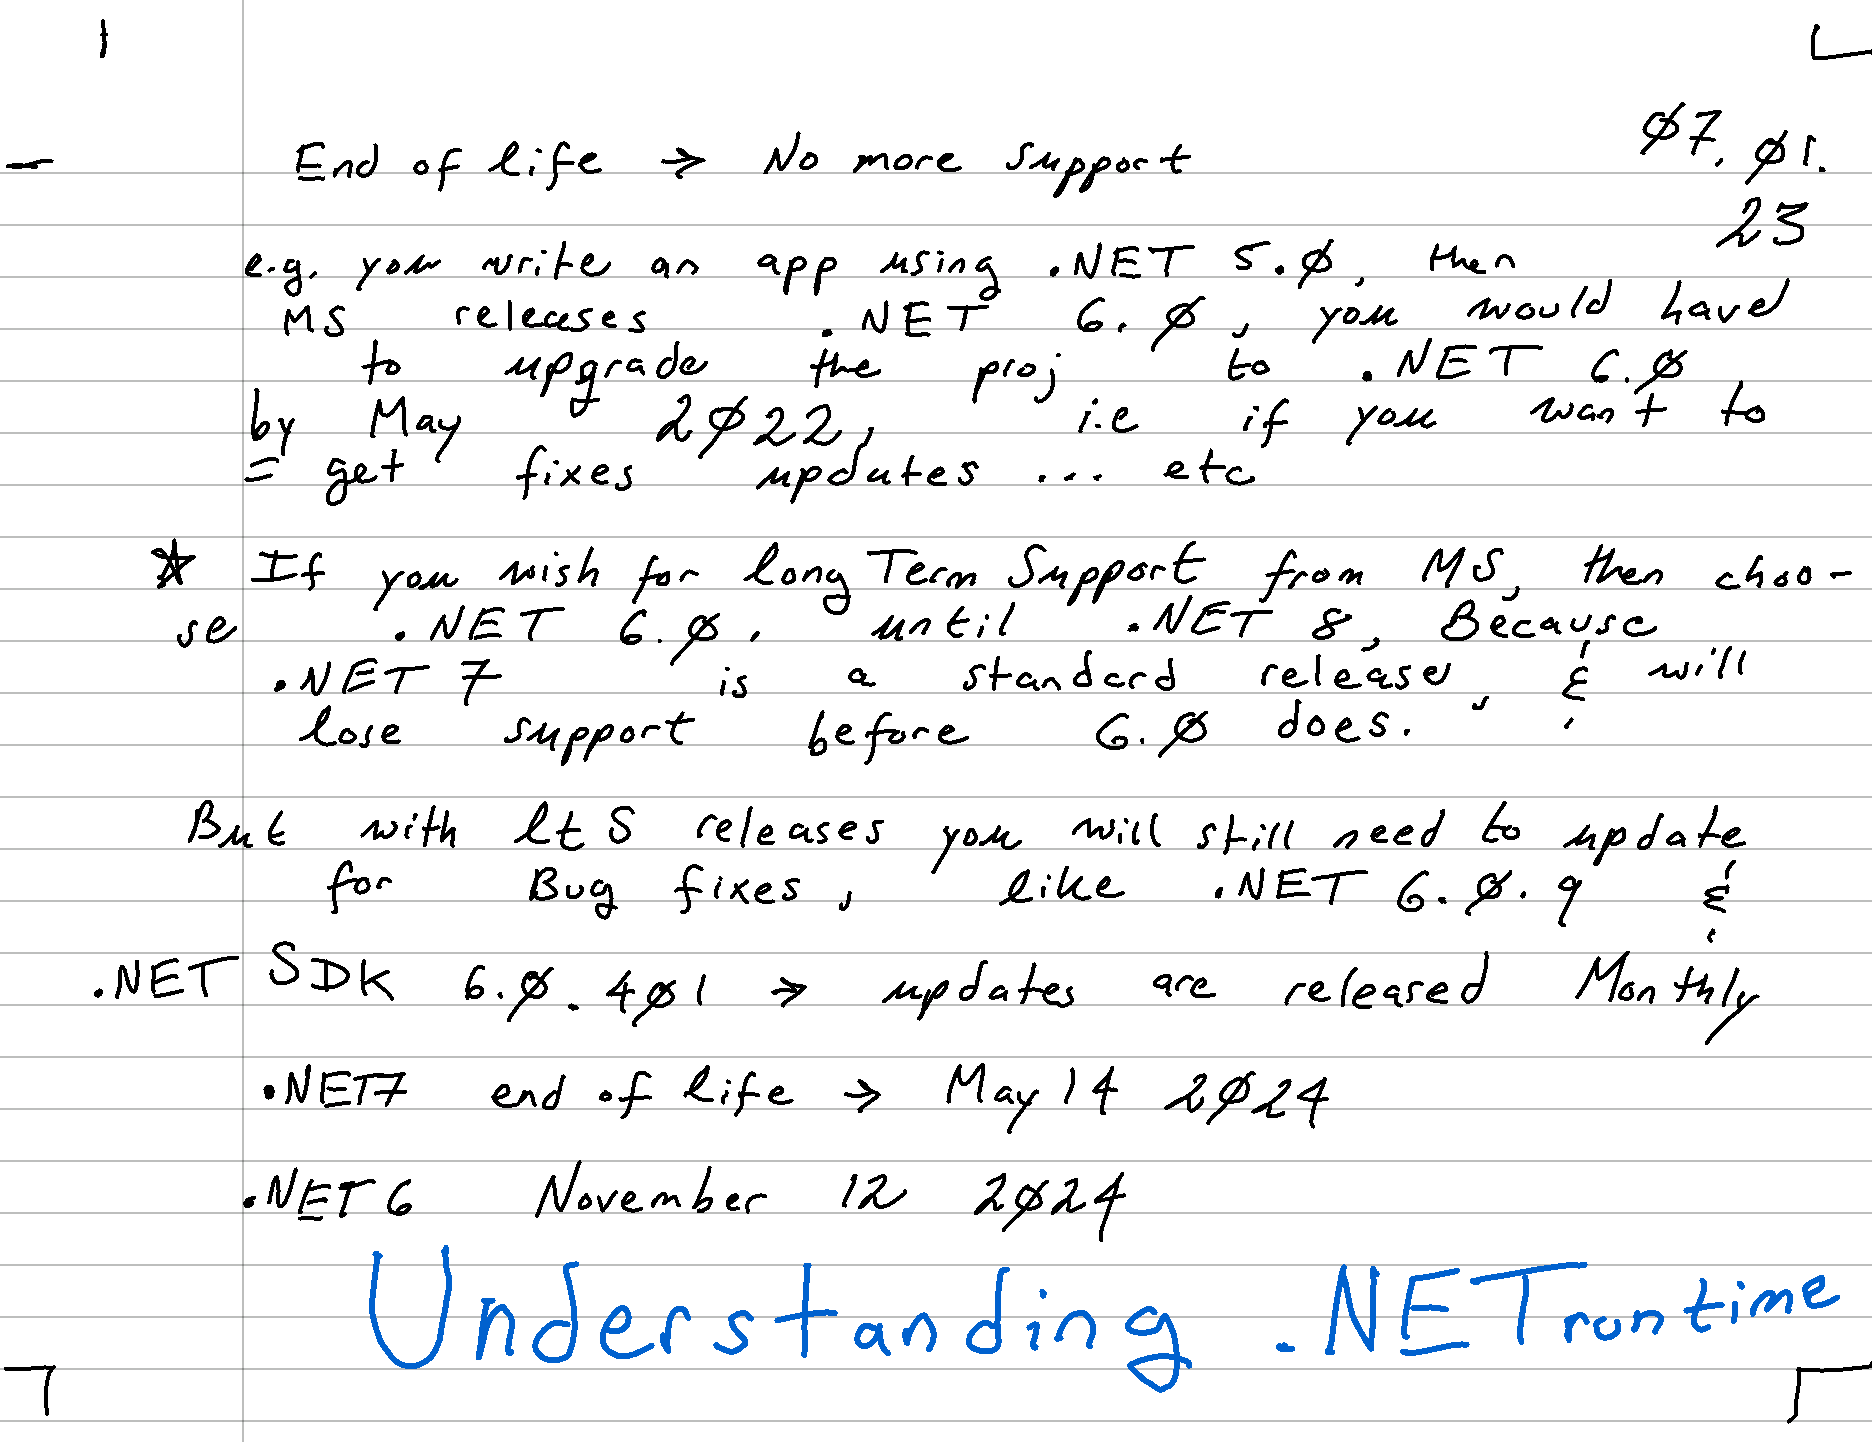 End of life → No more support
Ø7. Ø1.
23
e.g. you write an app using .NET 5.Ø, then
MS releases .NET 6.Ø, you would have
to upgrade the proj to .NET 6.Ø
by May 2Ø22, i.e if you want to
= get fixes updates ... etc
☆ If you wish for long Term Support from MS, then choo-
se .NET 6.Ø, until .NET 8, Because
.NET 7 is a standard release, & will
lose support before 6.Ø does.
But with ltS releases you will still need to update
for Bug fixes, like .NET 6.Ø.9 &
.NET SDK 6.Ø.4Ø1 → updates are released Monthly
.NET7 end of life → May 14 2Ø24
.NET 6 November 12 2Ø24
Understanding .NET runtime